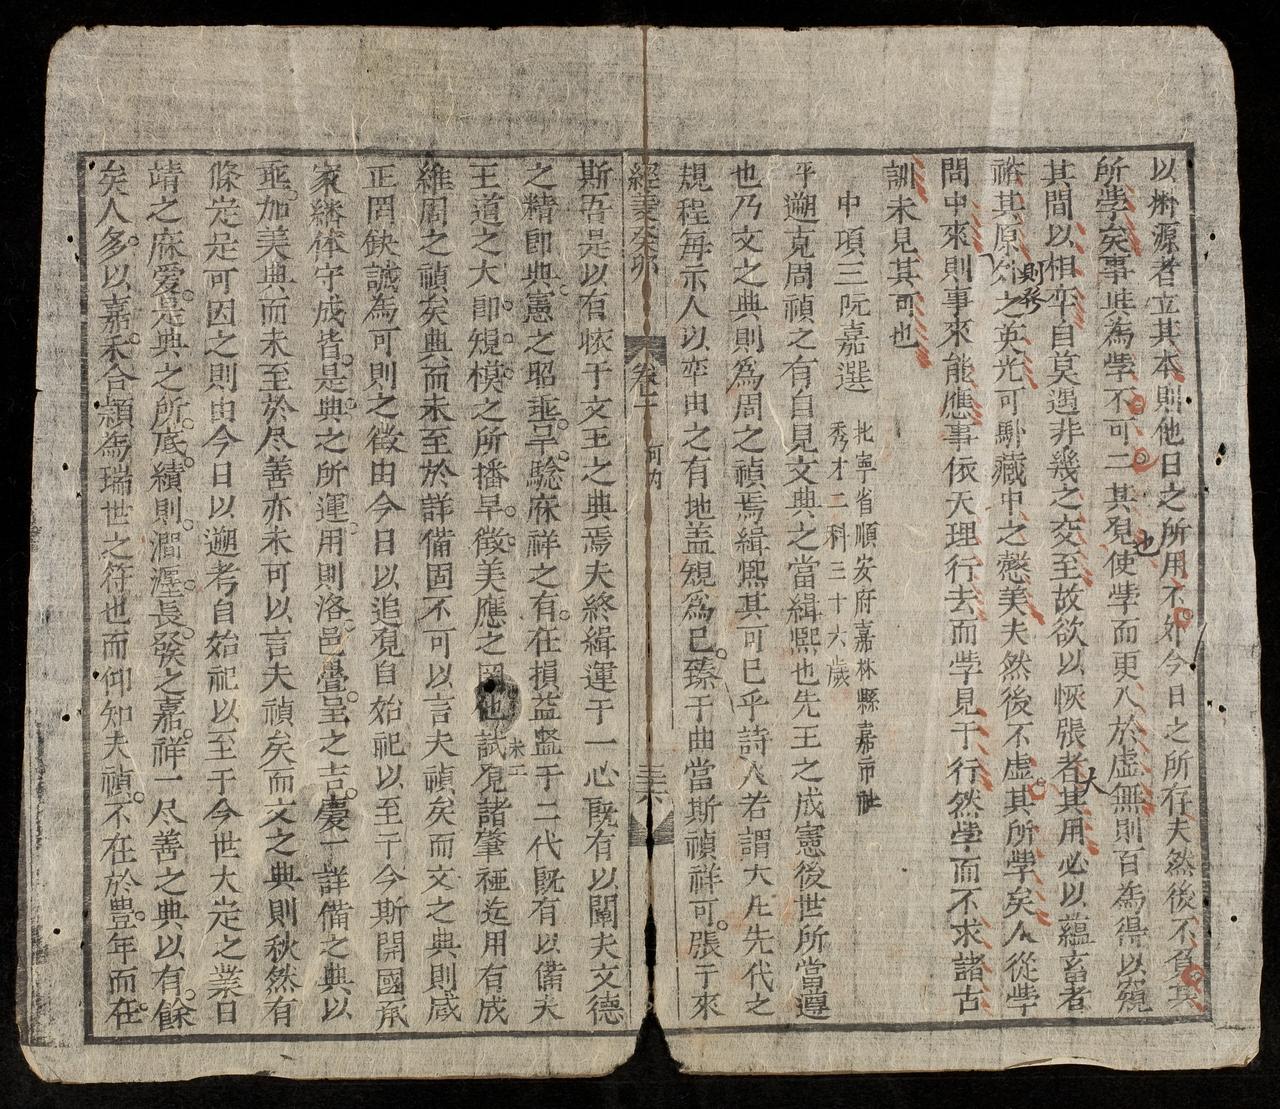 以㴝源者立其本則他日之所用不外今日之所存夫然後不負其
所學矣事與為學不可二其見使學而更入於虛無則百為得以窺
其間以相牵自莫遇非幾之交至故欲以恢張者其用必以蘊畜者
裕其原外之英光可馴藏中之懿美夫然後不虛其所學矣人從學
問中來則事來能應事依天理行去而學見于行然學而不求諸古
訓未見其可也
中項三阮嘉選
北寧省順安府嘉林縣嘉市社
秀才二科三十六歲
平遡克周禎之有自見文典之當緝熙也先王之成憲後世所當遵
也乃文之典則為周之禎焉緝熙其可已乎詩人若謂大凡先代之
規程每示人以率由之有地盖規為已臻于曲當斯禎祥可張于來
經義癸卯
卷二
河內
三六
斯吾是以有味于文王之典焉夫終緝運于一心既有以闡夫文德
之精即典憲之昭垂早騐庥祥之有在損益監于二代既有以備夫
王道之大即規模之所播早徵美應之罔也試覓諸肇禋迄用有成
維周之禎矣典而未至於詳備固不可以言夫禎矣而文之典則咸
正罔缺誠為可則之徵由今日以追覓自始祀以至于今斯開國承
家繼体守成皆是典之所運用則洛邑疊呈之吉慶一詳備之典以
垂加美典而未至於尽善亦未可以言夫禎矣而文之典則秩然有
條定足可因之則由今日以遡考自始祀以至于今世大定之業日
靖之庥愛是典之所底績則澗瀍長發之嘉祥一尽善之典以有餘
矣人多以嘉禾合頴為瑞世之符也而仰知夫禎不在於豊年而在